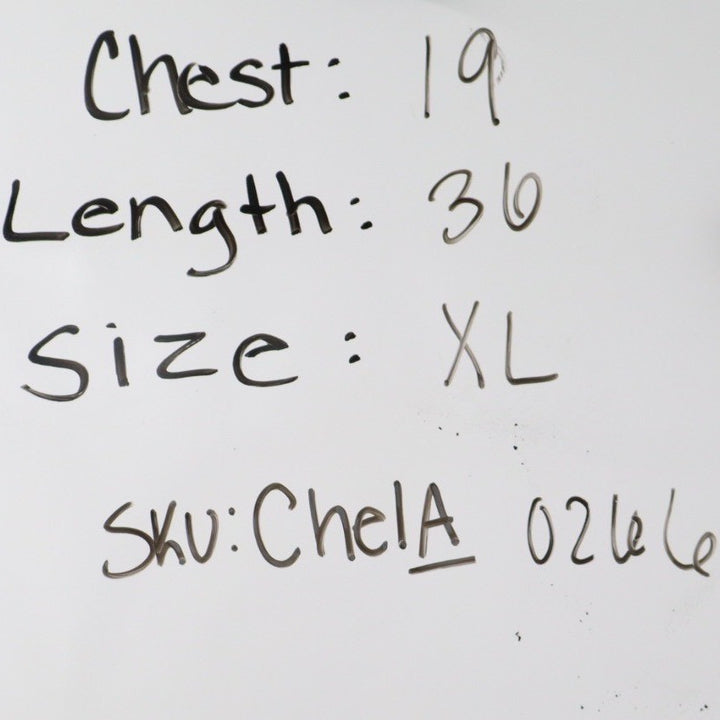 Chest: 19
Length: 36
Size: XL
SKU: ChelA 0266